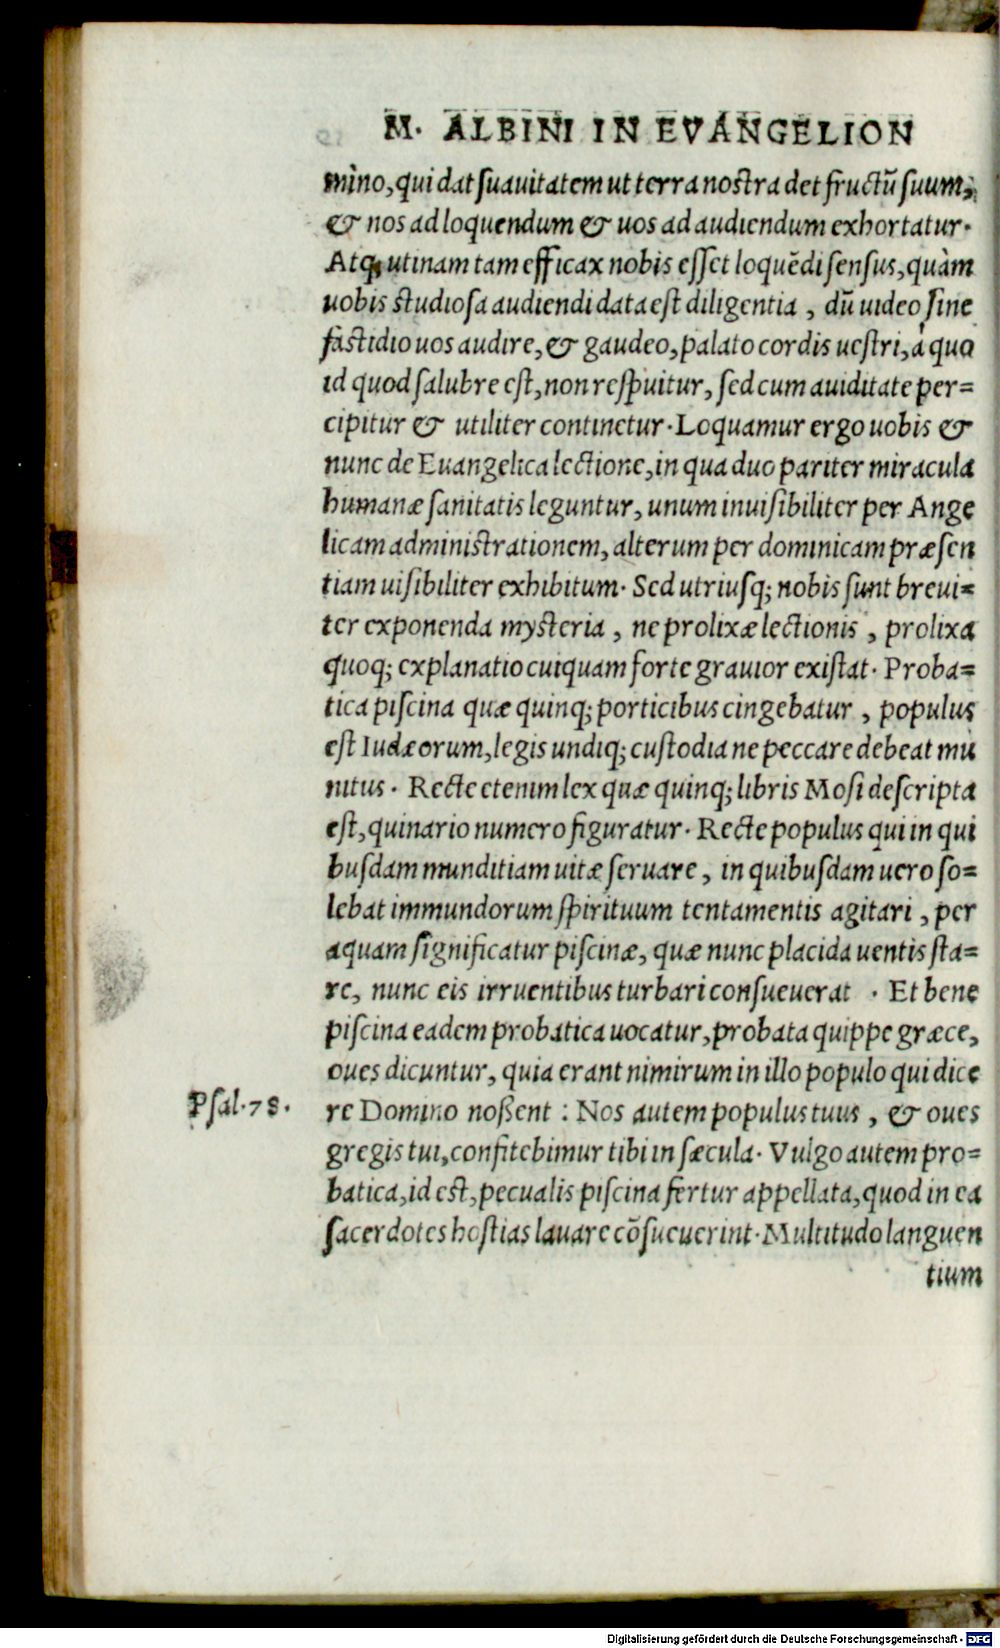 M. ALBINI IN EVANGELION
mino, qui dat suauitatem ut terra nostra det fructū suum,
& nos ad loquendum & uos ad audiendum exhortatur.
Atq; utinam tam efficax nobis esset loquēdi sensus, quàm
uobis studiosa audiendi data est diligentia, dū uideo sine
fastidio uos audire, & gaudeo, palato cordis uestri, à quo
id quod salubre est, non respuitur, sed cum auiditate per=
cipitur & utiliter continetur. Loquamur ergo uobis &
nunc de Euangelica lectione, in qua duo pariter miracula
humanæ sanitatis leguntur, unum inuisibiliter per Ange
licam administrationem, alterum per dominicam præsen
tiam uisibiliter exhibitum. Sed utriusq; nobis sunt breui=
ter exponenda mysteria, ne prolixæ lectionis, prolixa
quoq; explanatio cuiquam forte grauior existat. Proba=
tica piscina quæ quinq; porticibus cingebatur, populus
est Iudæorum, legis undiq; custodia ne peccare debeat mu
nitus. Recte etenim lex quæ quinq; libris Mosi descripta
est, quinario numero figuratur. Recte populus qui in qui
busdam munditiam uitæ seruare, in quibusdam uero so=
lebat immundorum spirituum tentamentis agitari, per
aquam significatur piscinæ, quæ nunc placida uentis sta=
re, nunc eis irruentibus turbari consueuerat. Et bene
piscina eadem probatica uocatur, probata quippe græce,
oues dicuntur, quia erant nimirum in illo populo qui dice
Psal. 78.
re Domino noßent: Nos autem populus tuus, & oues
gregis tui, confitebimur tibi in sæcula. Vulgo autem pro=
batica, id est, pecualis piscina fertur appellata, quod in ea
sacerdotes hostias lauare cōsueuerint. Multitudo languen
tium
Digitalisierung gefördert durch die Deutsche Forschungsgemeinschaft - DFG